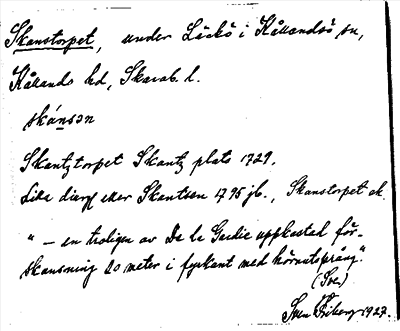 Skanstorpet, under Läckö i Kållandsö sn,
Kållands hd, Skarab. l.
skánsən
Skantztorpet Skantz plats 1729.
Lilla eller Skantsen 1795 jb., Skanstorpet ek.
"– en troligen av De la Gardie uppkastad för-
skansning 20 meter i fyrkant med hörnutsprång."
(Sve)
Sven Fiberg 1927.